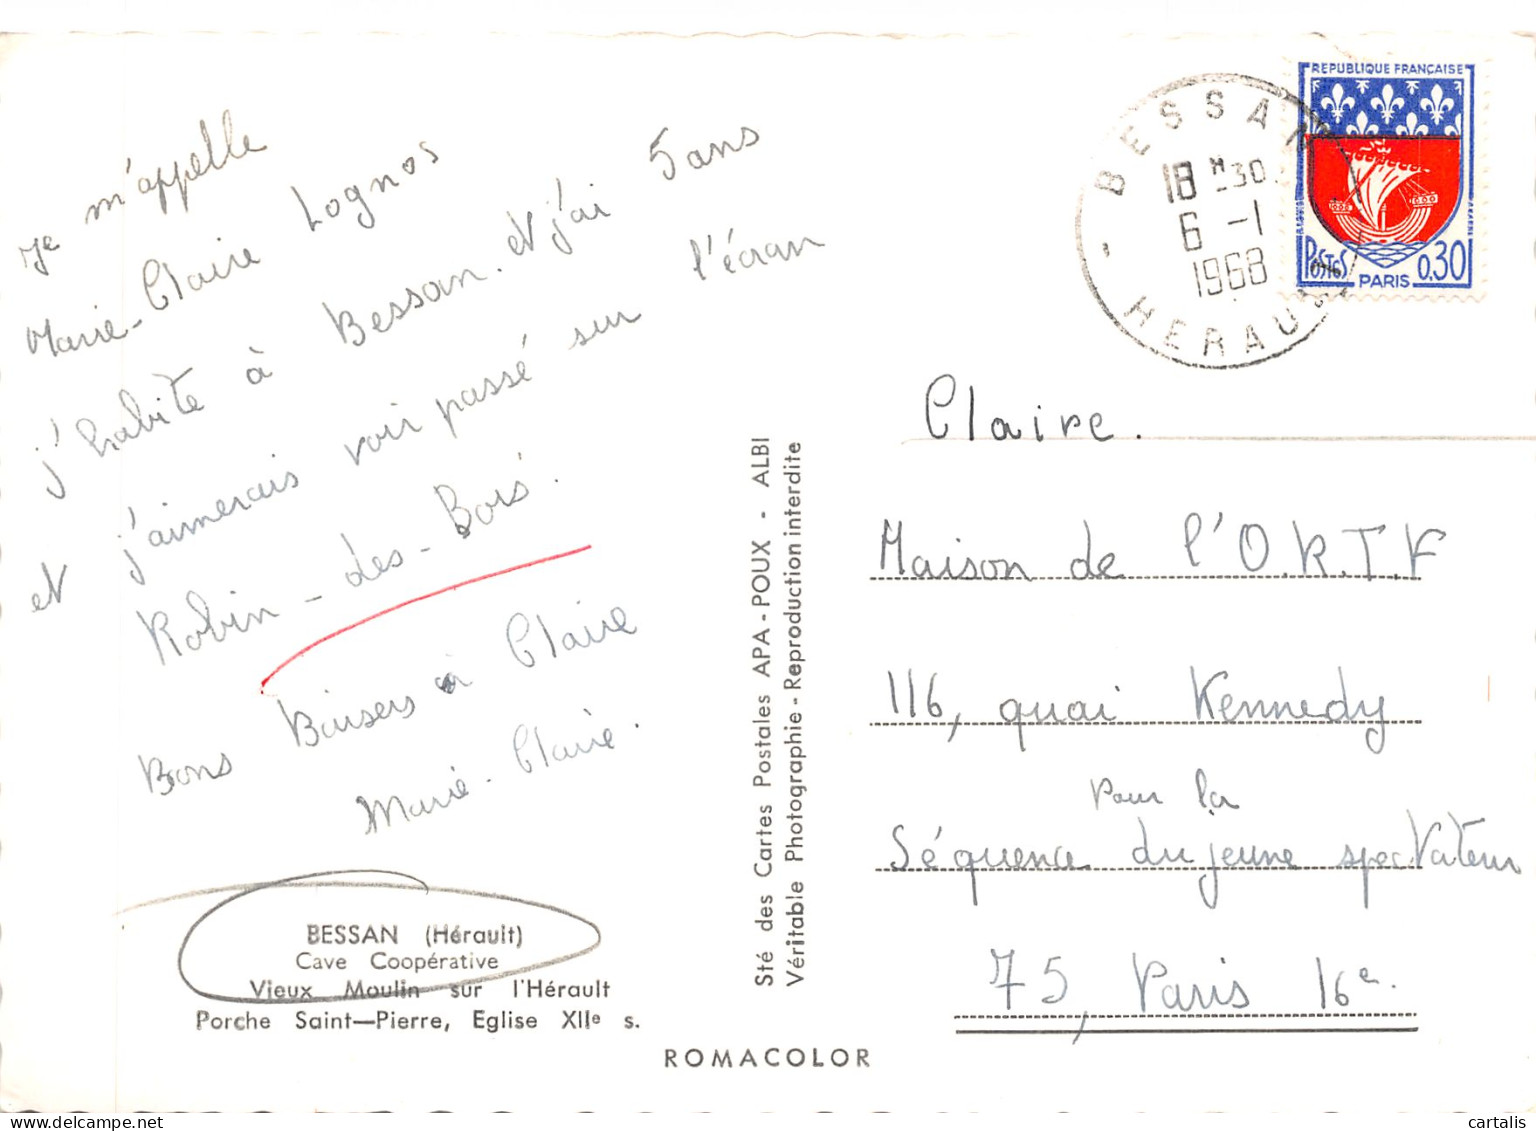 Je m'appelle
Marie-Claire Lognos
j'habite à Bessan. et j'ai 5 ans
et j'aimerais voir passé sur l'écran
Robin-des-Bois.
Bons Baisers à Claire
Marie-Claire.
BESSAN (Hérault)
Cave Coopérative
Vieux Moulin sur l'Hérault
Porche Saint-Pierre, Eglise XIIe s.
ROMACOLOR
Sté des Cartes Postales APA-POUX - ALBI
Véritable Photographie - Reproduction interdite
BESSAN
18 H -30
6 -1
1968
HERAULT
REPUBLIQUE FRANÇAISE
POSTES 0,30
PARIS
Claire.
Maison de l'O.R.T.F
116, quai Kennedy
Pour la
Séquence du jeune spectateur
75, Paris 16e.
cartalis